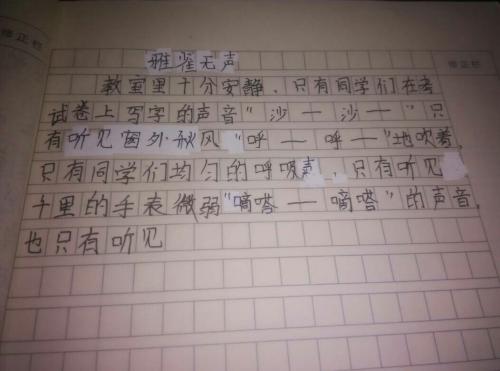 修正栏
修正栏
雅雀无声
教室里十分安静，只有同学们在考
试卷上写字的声音"沙一沙一"只
有听见窗外秋风"呼一呼一"地吹着，
只有同学们均匀的呼吸声，只有听见
千里的手表微弱"嘀嗒一嘀嗒"的声音，
也只有听见